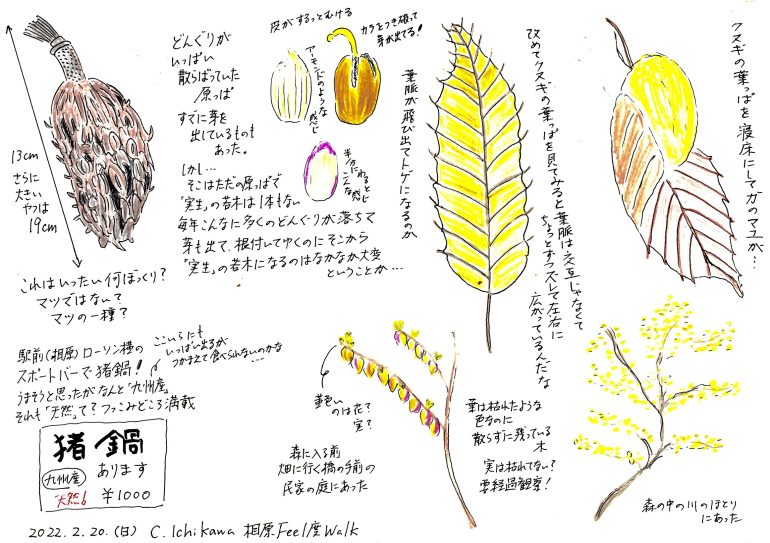 13cm
さらに
大きい
やつは
19cm
これはいったい何ぼっくり?
マツではないて
マツの一種?
どんぐりが
いっぱい
散らばっていた
原っぱ
すでに芽を
出しているものも
あった。
しかし…
そこはただの原っぱで
「実生」の若木は1本もない
毎年こんなに多くのどんぐりが落ちて
芽も出て、根付いてゆくのにそこから
「実生」の若木になるのはなかなか大変
ということか…
皮がするっとむける
カラをつき破って
芽が出てる!
アーモンドのような
感じ
半分にわれると
こんな感じ
葉脈が飛び出てトゲになるのか
改めてクヌギの葉っぱを見てみると葉脈は交互じゃなくて
ちょっとずつズレて左右に
広がっているんだな
クヌギの葉っぱを寝床にしてガのマユが…
駅前(相原)ローソン横の
スポートバーで猪鍋!
うまそうと思ったがなんと「九州産」
それも「天然」て?ツッコみどころ満載
ここいらにも
いっぱい出るが
つかまえて食べられないのかな
…
猪鍋
九州産
あります
天然
¥1000
黄色い
のは花?
実?
森に入る前
畑に行く橋の手前の
民家の庭にあった
葉は枯れたような
色なのに
散らずに残っている
木
実は枯れてない?
要経過観察!
森の中の川のほとり
にあった
2022.2.20.(日) C.Ichikawa 相原Feel度Walk